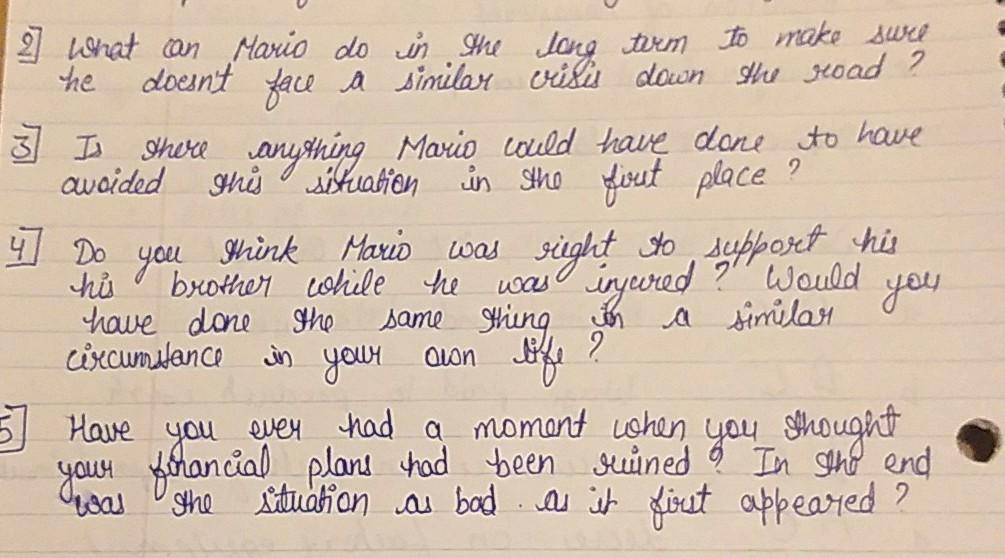 2] What can Mario do in the long term to make sure
he doesnt face a similar crisis down the road ?
3] Is there anything Mario could have done to have
avoided this situation in the first place ?
4] Do you think Mario was right to support his
his brother while he was injured ? Would you
have done the same thing in a similar
circumstance in your own life ?
5] Have you ever had a moment when you thought
your financial plans had been ruined ? In the end
was the situation as bad . as it first appeared ?